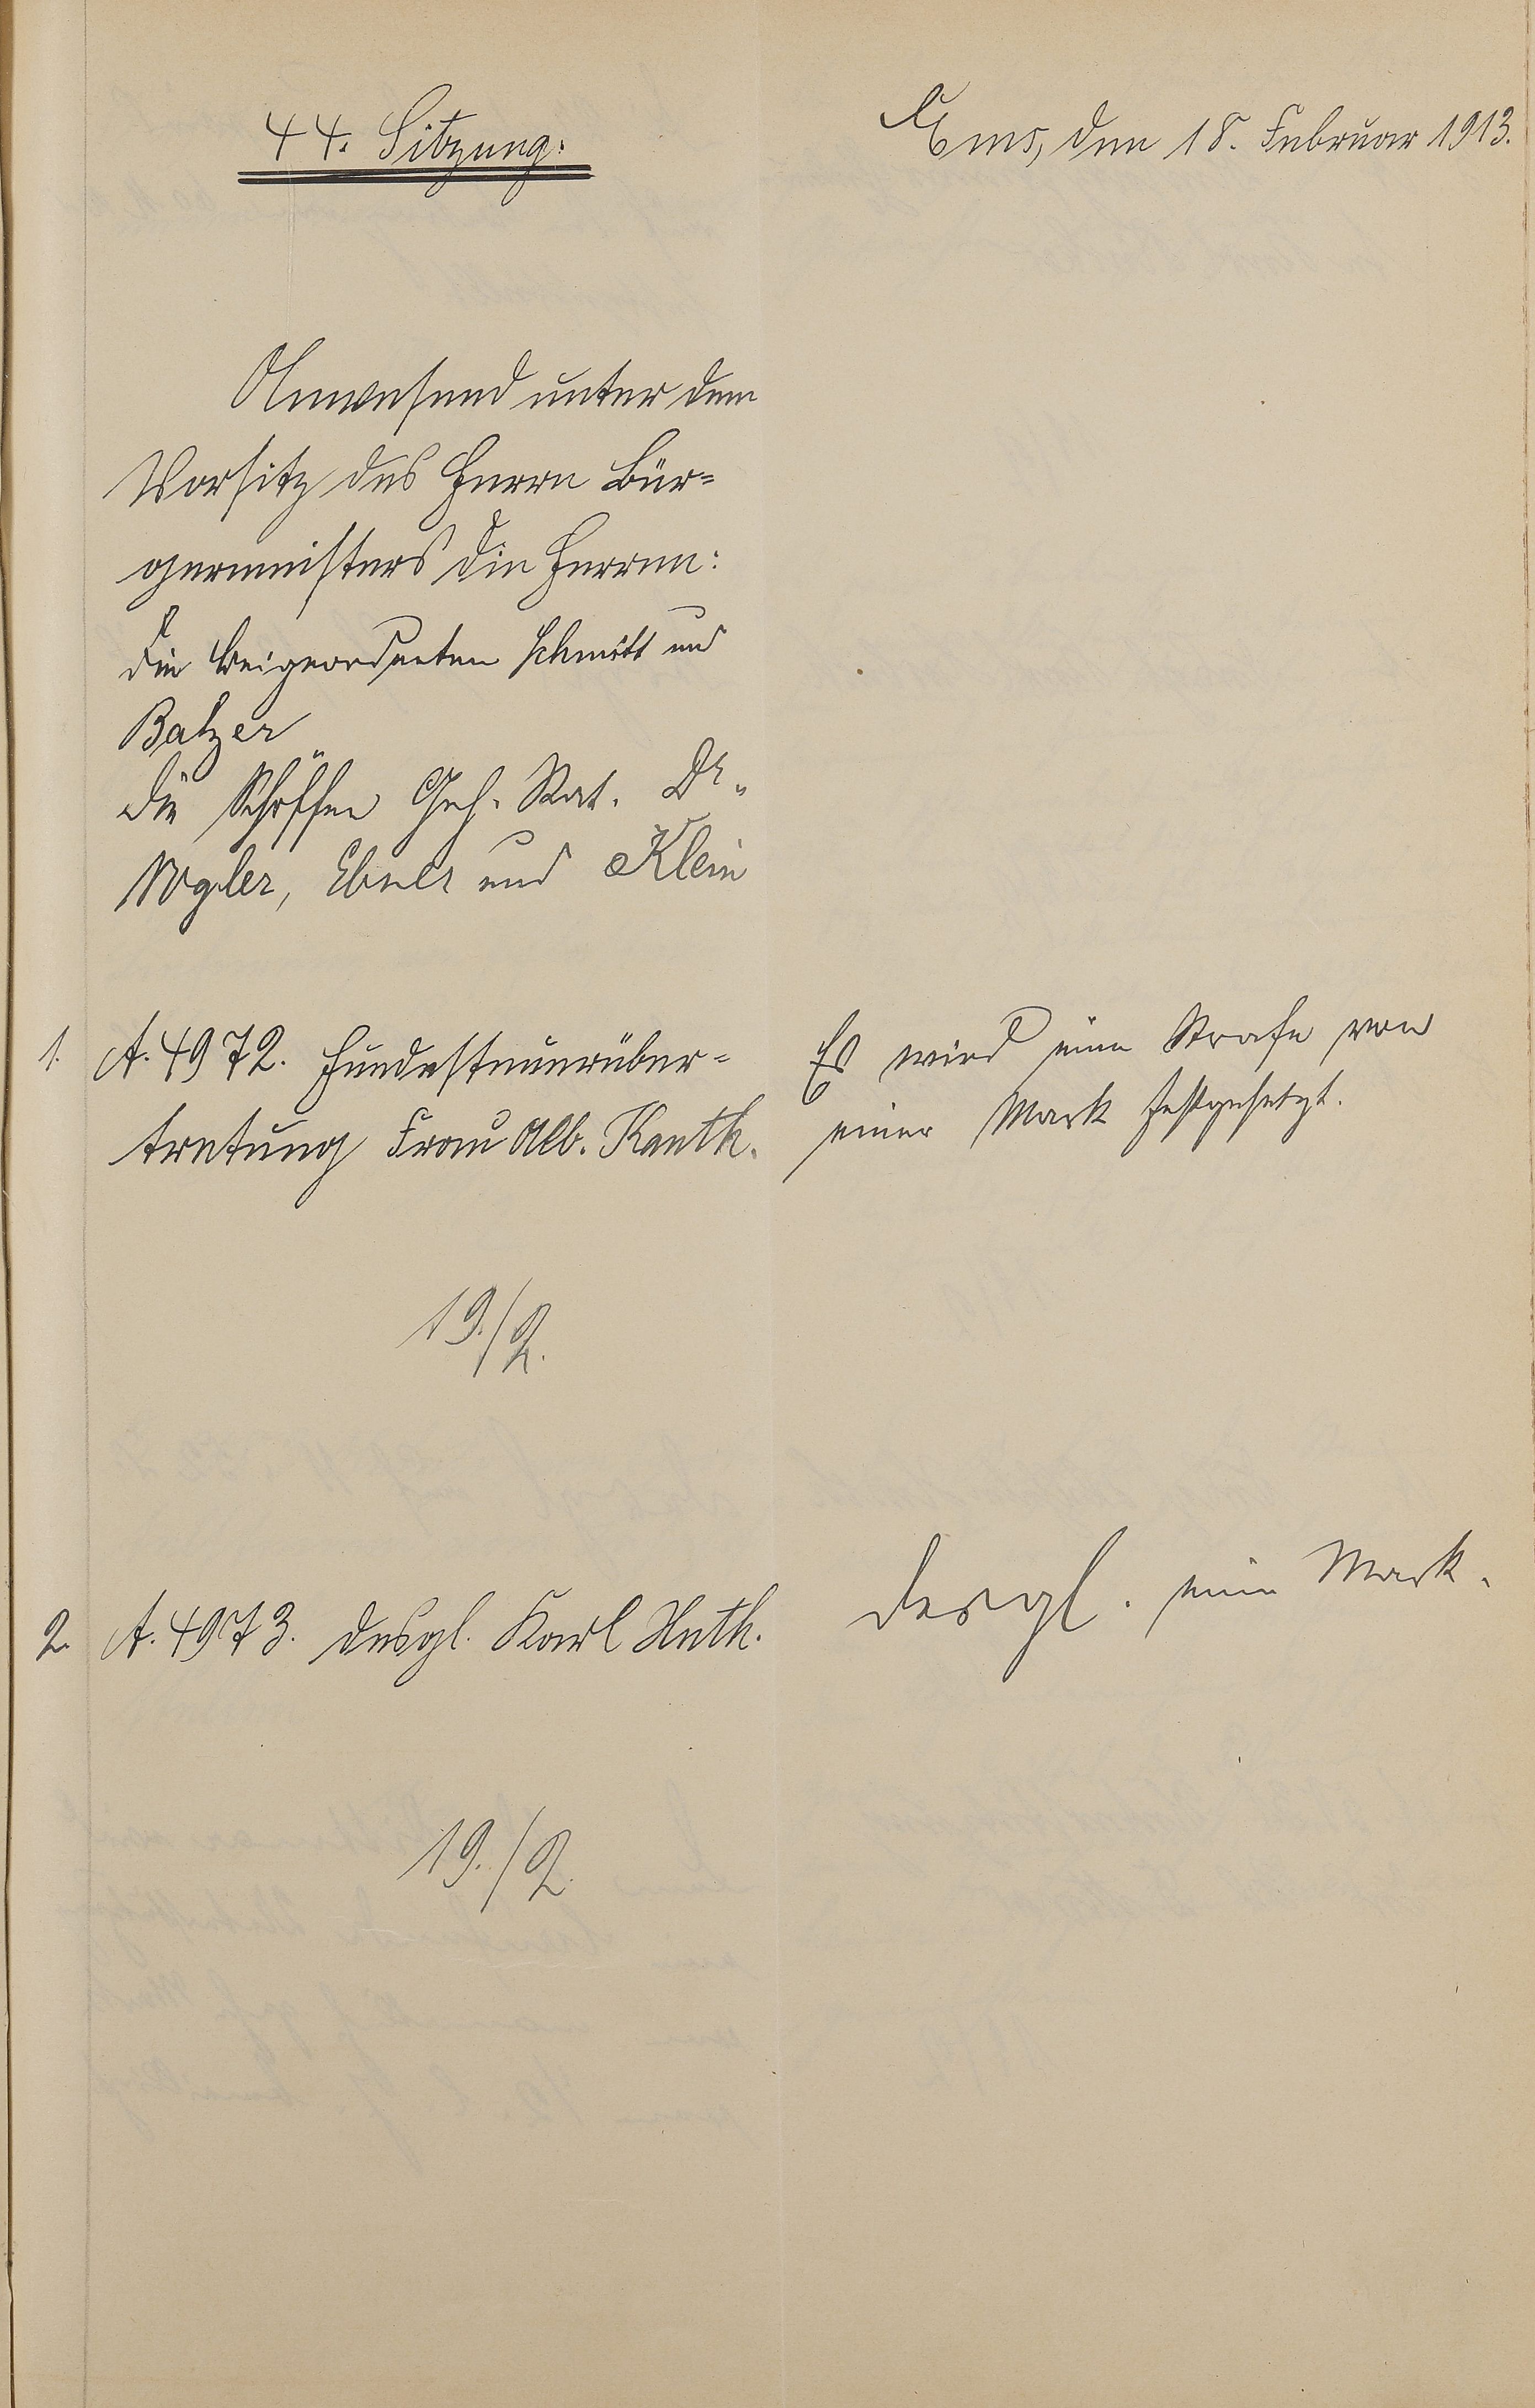 44. Sitzung.
Ems, den 18. Februar 1913.
Anwesend unter dem
Vorsitz des Herrn Bür=
germeisters die Herren:
die Beigeordneten Schmitt und
Balzer
die Schöffen Geh. Rat. Dr.
Vogler, Ebner und Klein
1. A. 4972. Hundesteuerüber=
tretung Frau Alb. Kauth.
Es wird eine Strafe von
einer Mark festgesetzt.
19./2.
2. A. 4973. desgl. Karl Huth.
desgl. eine Mark.
19./2.